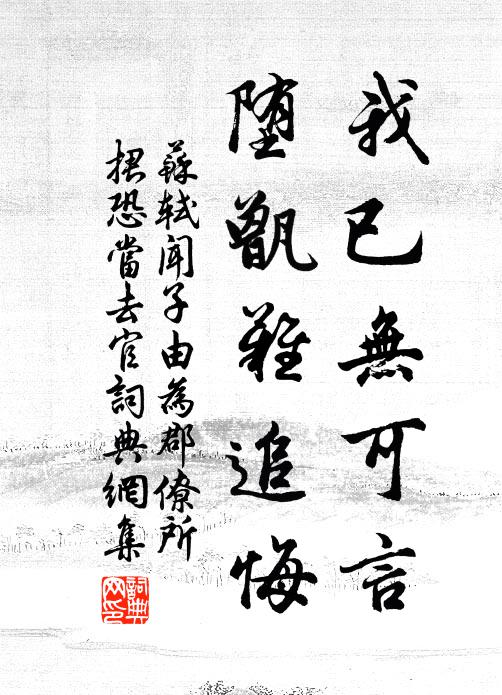 我已無可言
堕甑難追悔
蘇軾聞子由為郡僚所
捃恐當去官詞典網集
詞典
网印